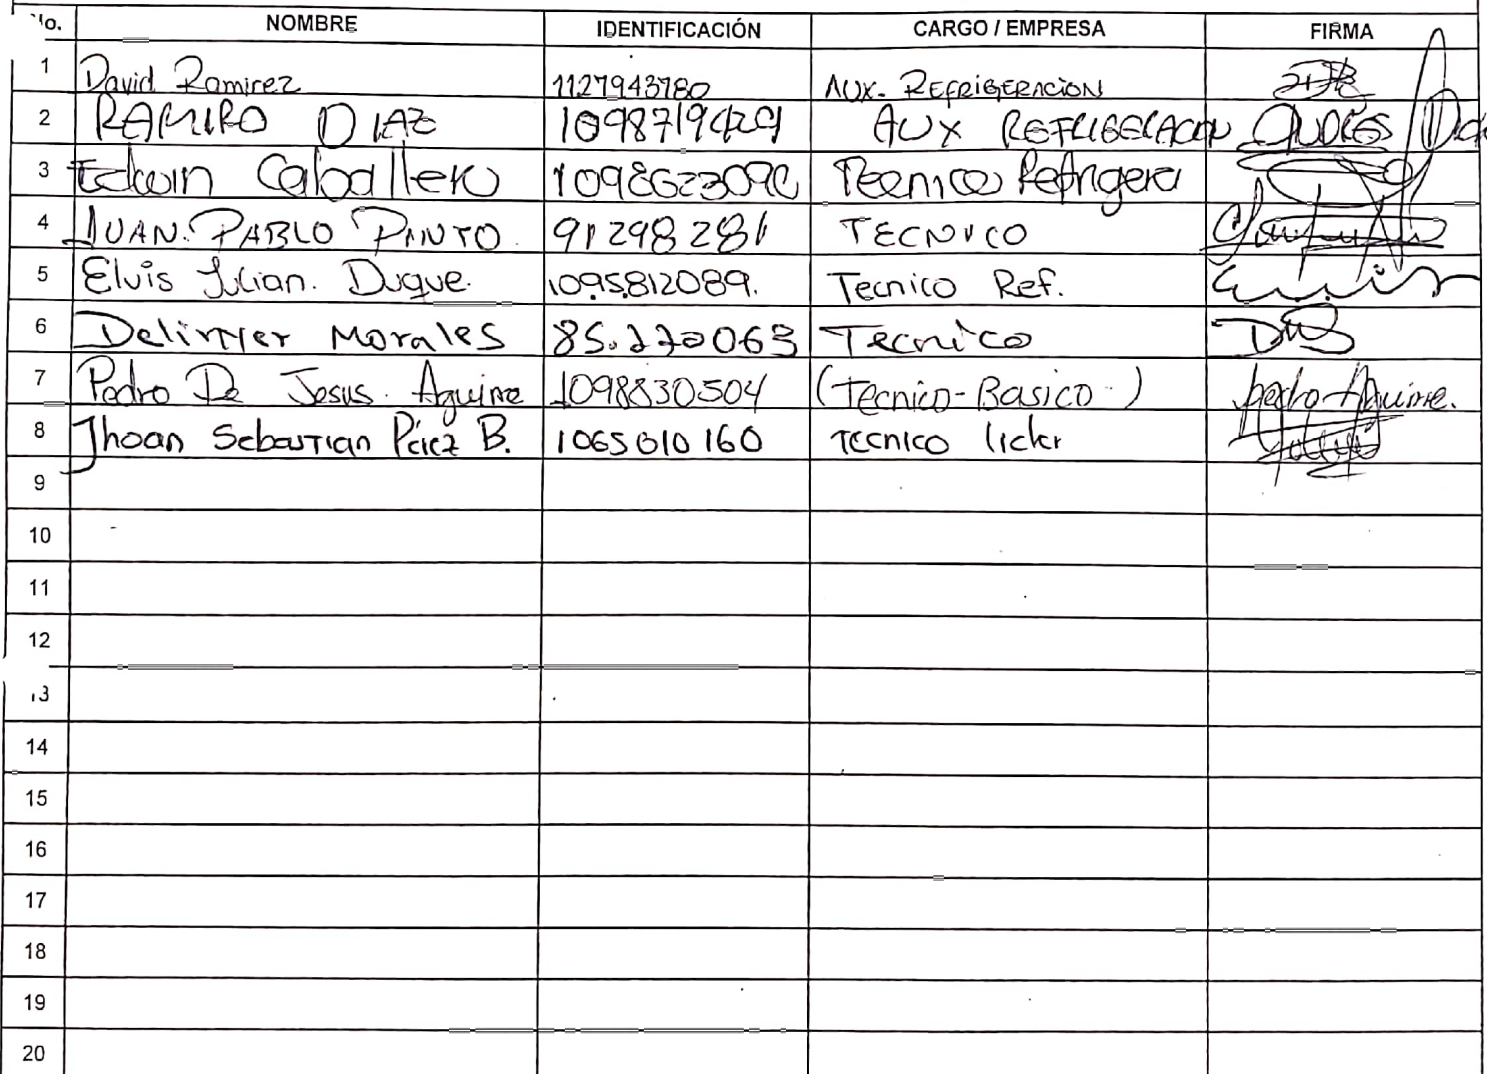 No. NOMBRE IDENTIFICACIÓN CARGO / EMPRESA FIRMA
1 David Ramirez 1127943780 AUX. REFRIGERACION
2 RAMIRO DIAZ AUX REFRIGERACION
3 Edwin Caballero Tecnico Refrigera
4 JUAN. PABLO PINTO 91298281 TECNICO
5 Elvis Julian. Duque. 1095812089. Tecnico Ref.
6 Delimer Morales 85.270063 Tecnico
7 Pedro De Jesus. Aguirre 1098830504 (Tecnico-Basico) Pedro Aguirre.
8 Jhoan Sebastian Pérez B. 1065010160 Tecnico lider
9
10
11
12
13
14
15
16
17
18
19
20